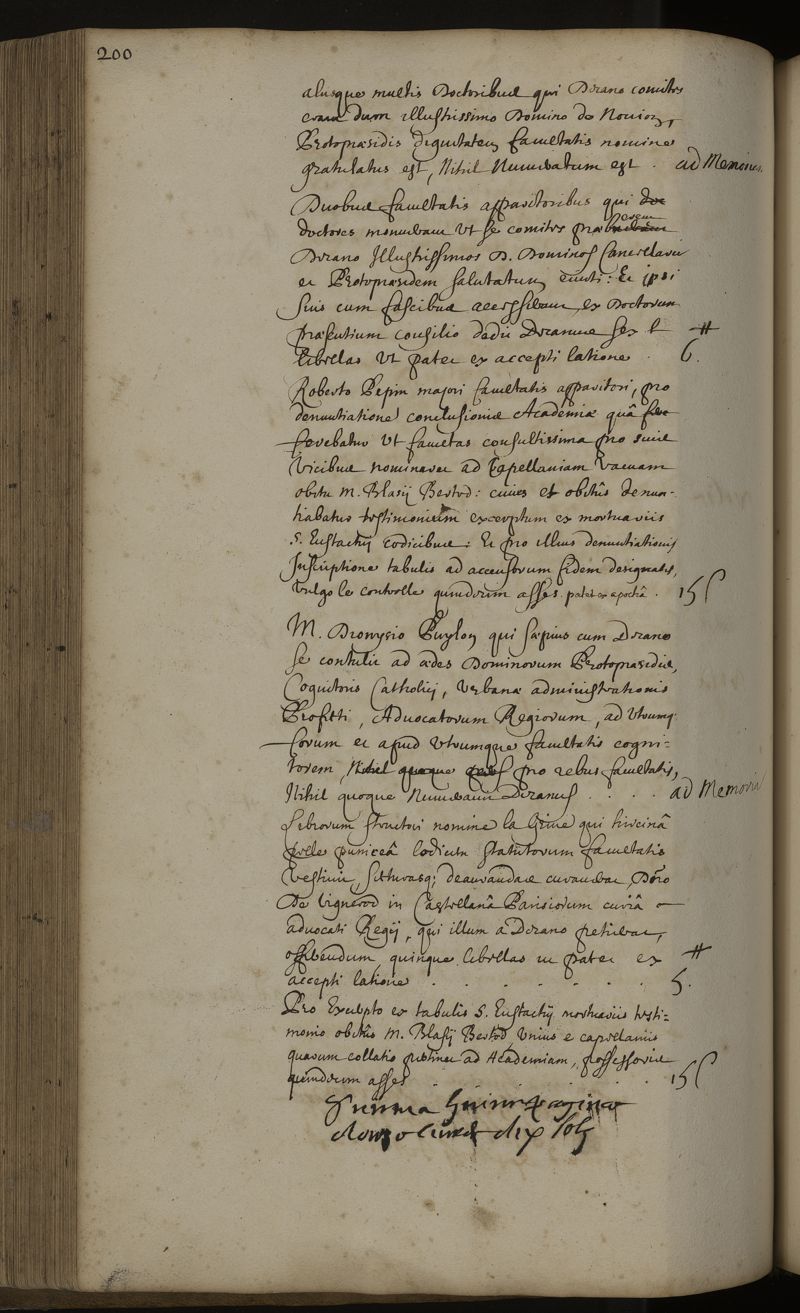 200
aliisque multis Doctoribus qui Decano comites
erant dum illustrissimo Domino de Novion,
Protopraesidis dignitatem facultatis nomine
gratulatus est, Nihil Numeratum est . ad Memoriam
Duobus facultatis apparitoribus qui
doctores monuerant Ut se comites praeberent
Decano Illustrissimos D. Dominos Cancellarium
et Protopraesidem salutatum eunti: Et ipsi
suis cum fascibus accesserant, ex Doctorum
praesentium consilio dedit Decanus sex
libellas Ut patet ex accepti latione . 6. ₶
Roberto Pepin majori facultatis apparitori, pro
denuntiatione conclusionis Academiae quâ
ferebatur Ut facultas consultissima pro suis
Vicibus nominaret ad Capellaniam Vacuam
obitu M. Blasij : cuius et obitûs denun-
tiabatur testimonium exceptum ex mortuariis
S. Eustachij codicibus: Et pro illius denuntiationis
Inscriptione tabulis ad accensorum fidem designatis,
Vulgo le controlle quindecim asses. patet ex apochâ . 15 ſ
M. Dionysio Puylon qui saepius cum Decano
se contulit ad aedes Dominorum Protopraesidis,
Cognitoris Catholici, Urbanae administrationis
, Advocatorum Regiorum, ad Utrumq.
forum et apud Utrumque facultatis cogni-
torem, pro rebus facultatis,
Nihil quoque Numeravit Decanus . . . . ad Memoriam
Librorum structori nomine la qui hircinâ
pelle puniceâ codicem statutorum facultatis
Vestiit, deaurandas curaverat, Dno
De Vignerod in Castellanâ Parisiorum curiâ
advocati Regij, qui illum a Decano petierat,
offerendum quinque libellas ut patet ex ₶
accepti latione . . . . . . . 5.
Pro Excerpto ex tabulis S. Eustachij mortuariis testi-
monio obitûs M. Blasij Unius e capellaniis
quarum collatio pertinet ad Academiam, possessoris
quindecim asses . . . . . . 15 ſ
Summa huius paginae